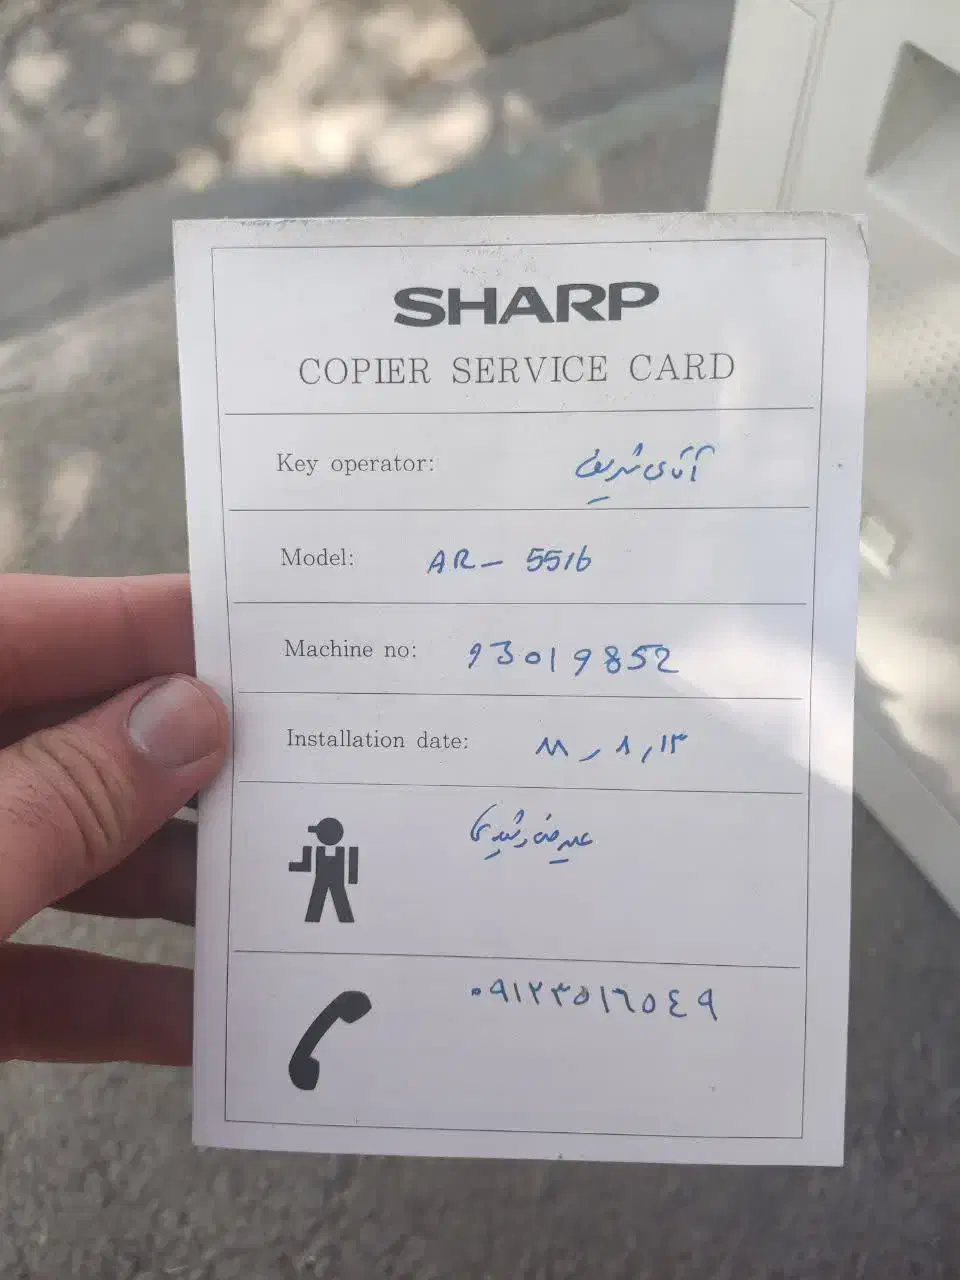 SHARP
COPIER SERVICE CARD
Key operator: آقای شریفی
Model: AR- 5516
Machine no: 93019852
Installation date: ۸۸,۸,۱۳
علیرضا رشیدی
۰۹۱۲۳۵۱۶۵۴۹